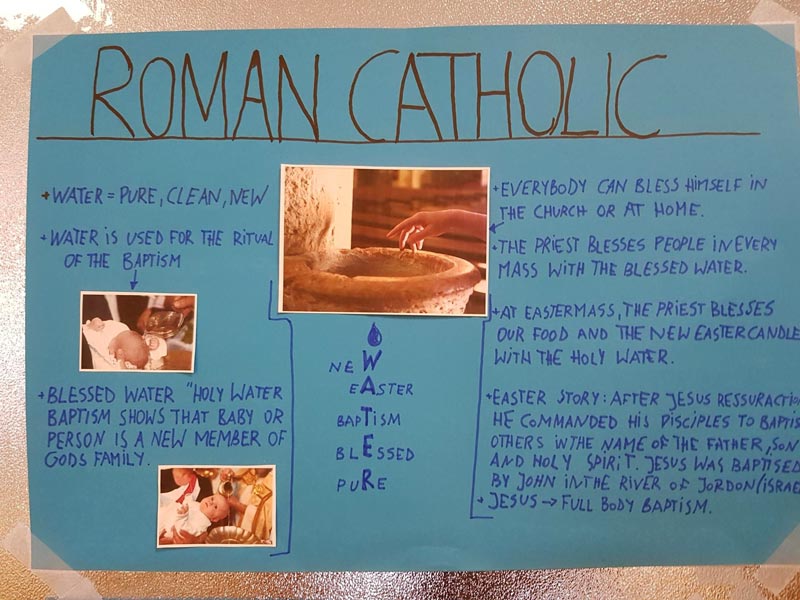 ROMAN CATHOLIC
+ WATER = PURE, CLEAN, NEW
+ WATER IS USED FOR THE RITUAL
OF THE BAPTISM
+ BLESSED WATER "HOLY WATER
BAPTISM SHOWS THAT BABY OR
PERSON IS A NEW MEMBER OF
GODS FAMILY.
NEW
EASTER
BAPTISM
BLESSED
PURE
+ EVERYBODY CAN BLESS HIMSELF IN
THE CHURCH OR AT HOME.
+ THE PRIEST BLESSES PEOPLE IN EVERY
MASS WITH THE BLESSED WATER.
+ AT EASTERMASS, THE PRIEST BLESSES
OUR FOOD AND THE NEW EASTERCANDLE
WITH THE HOLY WATER.
+ EASTER STORY: AFTER JESUS RESSURACTION
HE COMMANDED HIS DISCIPLES TO BAPTIS
OTHERS IN THE NAME OF THE FATHER, SON
AND HOLY SPIRIT. JESUS WAS BAPTISED
BY JOHN IN THE RIVER OF JORDON (ISRAE
+ JESUS → FULL BODY BAPTISM.